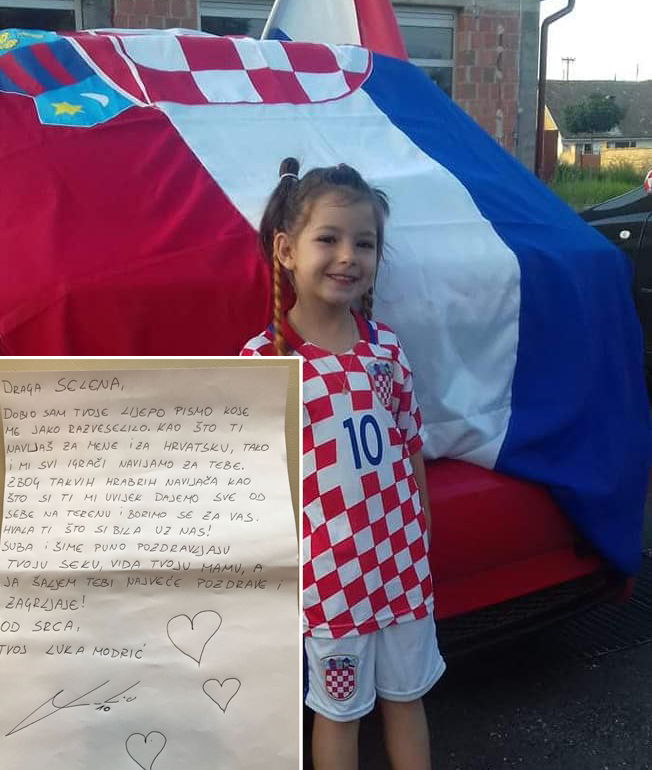 10
DRAGA SELENA,
DOBIO SAM TVOJE LIJEPO PISMO KOJE
ME JAKO RAZVESELILO. KAO ŠTO TI
NAVIJAŠ ZA MENE I ZA HRVATSKU, TAKO
I MI SVI IGRAČI NAVIJAMO ZA TEBE.
ZBOG TAKVIH HRABRIH NAVIJAČA KAO
ŠTO SI TI MI UVIJEK DAJEMO SVE OD
SEBE NA TERENU I BORIMO SE ZA VAS.
HVALA TI ŠTO SI BILA UZ NAS!
SUBA I ŠIME PUNO POZDRAVLJAJU
TVOJU SEKU, VIDA TVOJU MAMU, A
JA ŠALJEM TEBI NAJVEĆE POZDRAVE I
ZAGRLJAJE!
OD SRCA,
TVOJ LUKA MODRIĆ
10